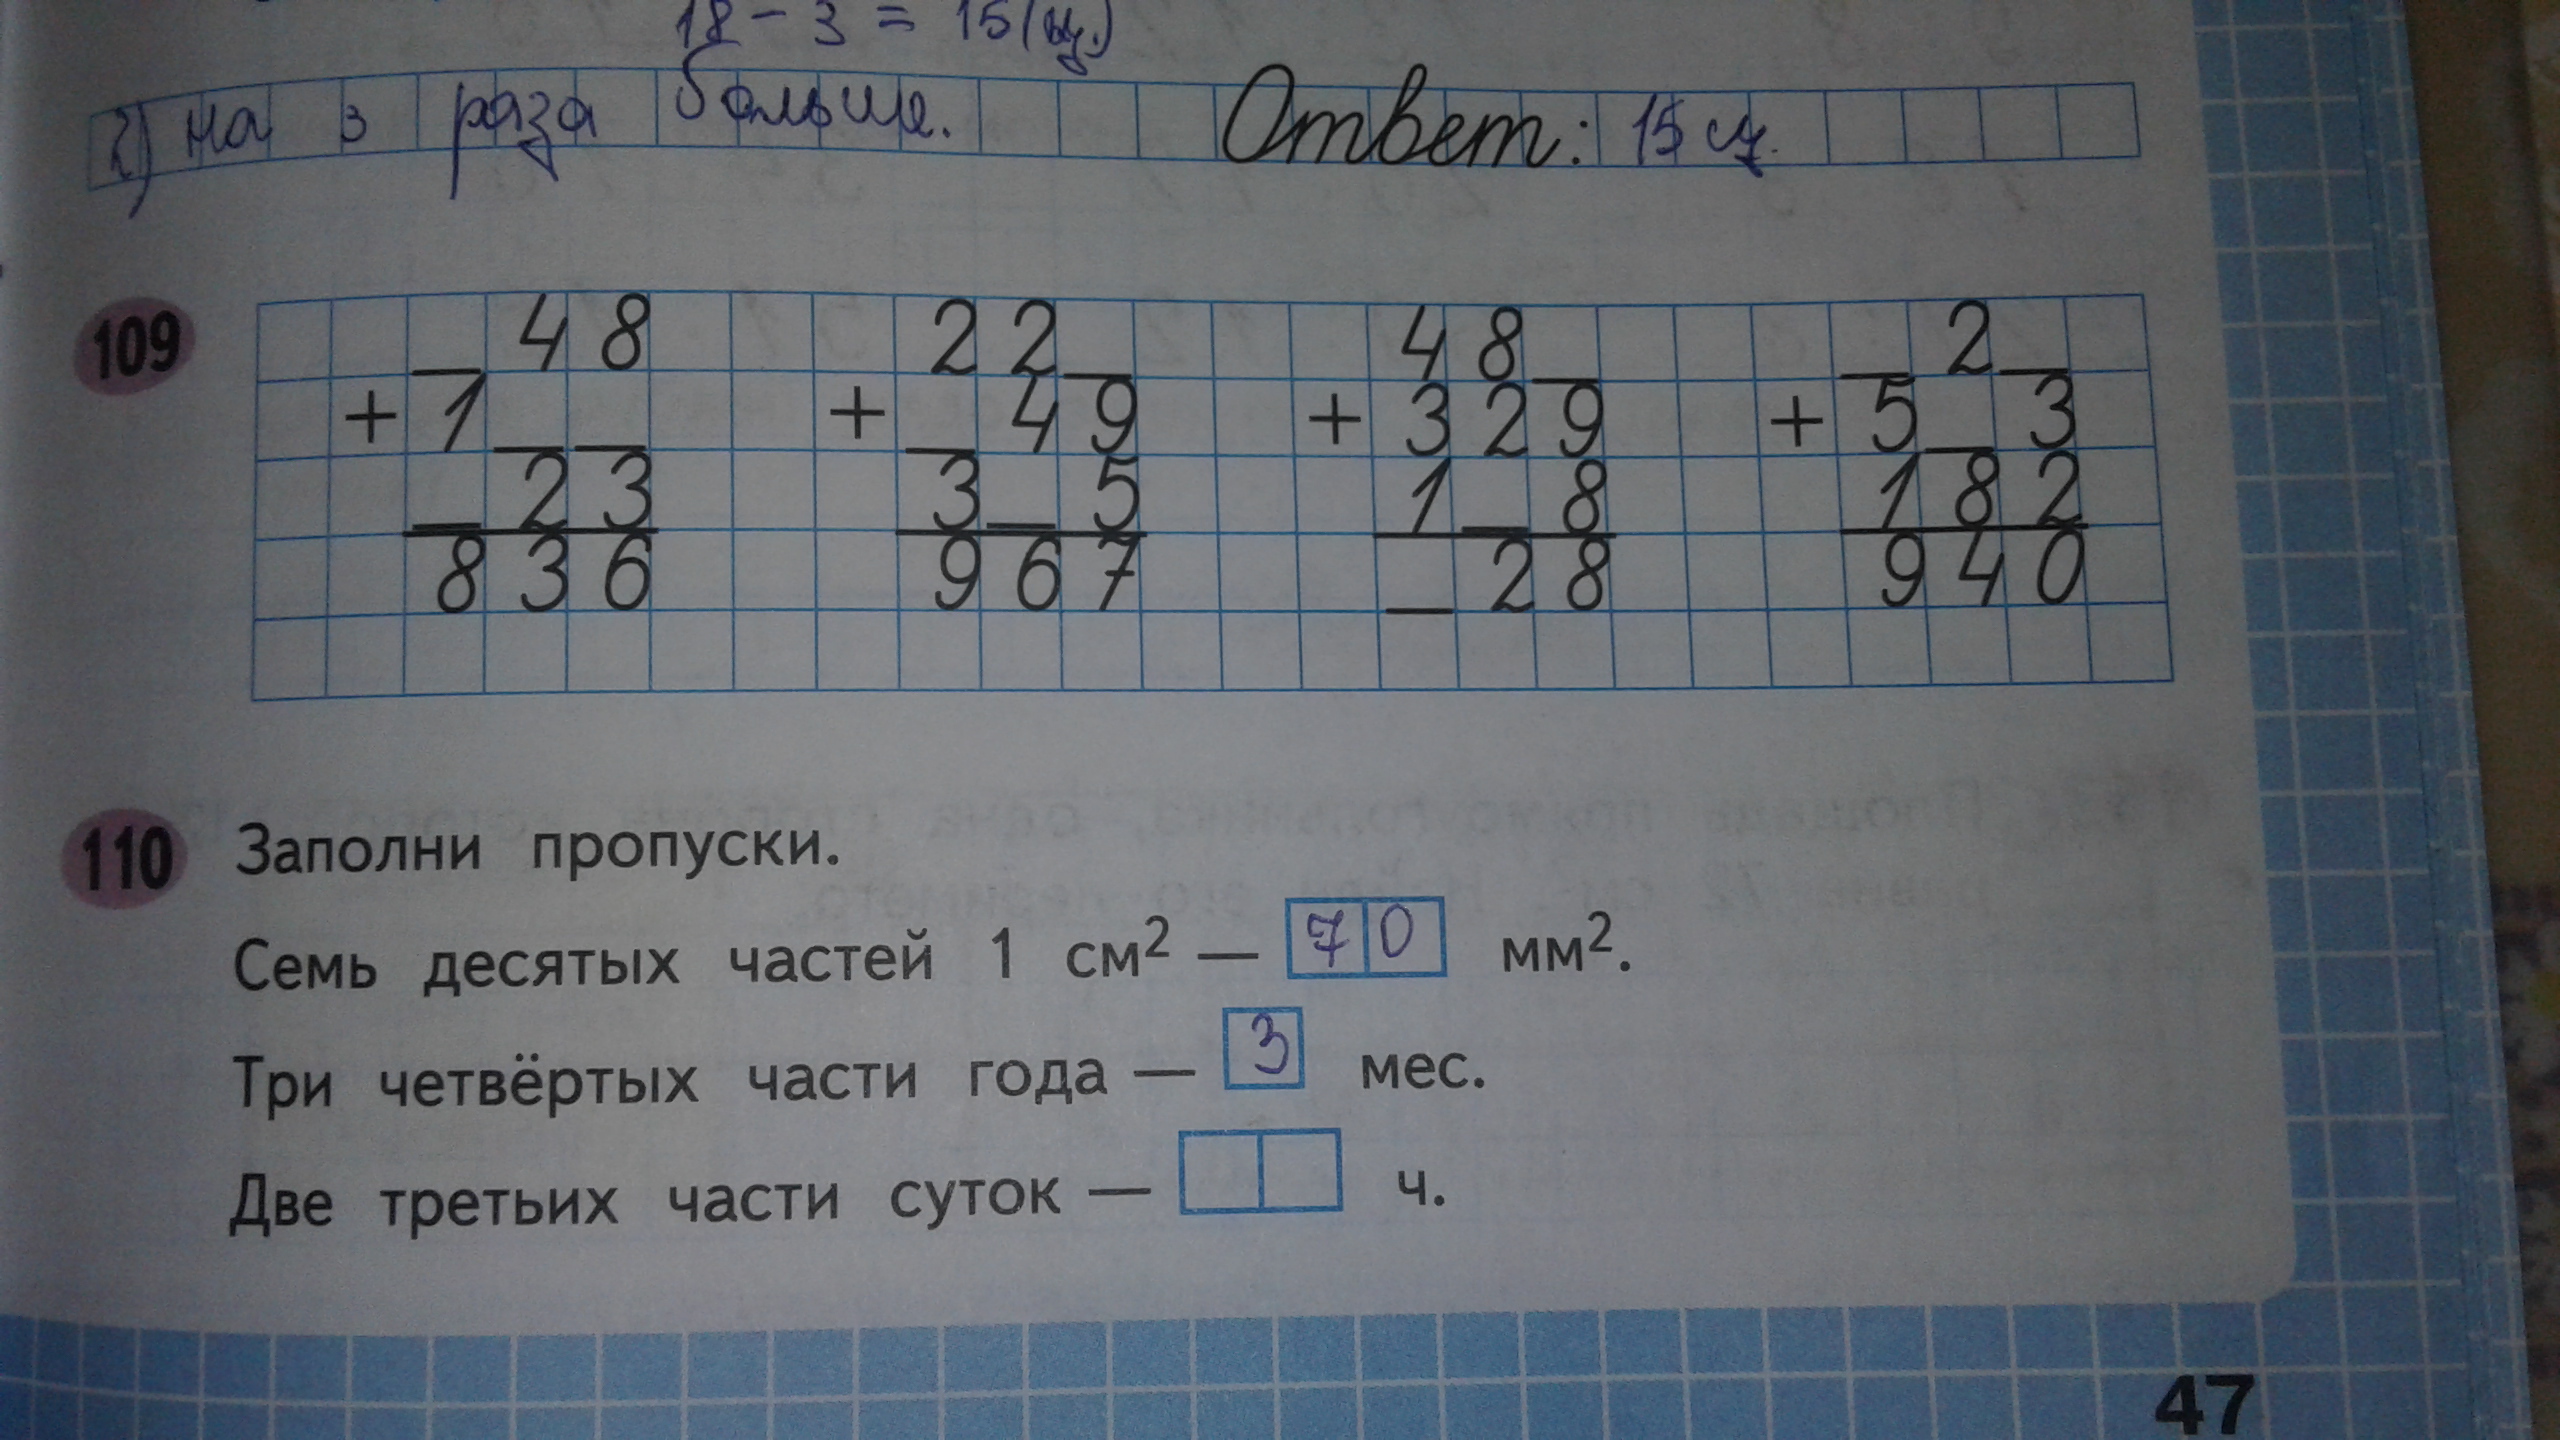 18 - 3 = 15 (ц.)
2) на 3 раза больше. Ответ: 15 ц.
109
_48 22_ 48_ _2_
+ 1__ + _49 + 329 + 5_3
_23 3_5 1_8 182
836 967 _28 940
110 Заполни пропуски.
Семь десятых частей 1 см² — 70 мм².
Три четвёртых части года — 3 мес.
Две третьих части суток — ч.
47